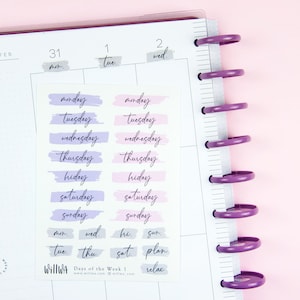 31 1 2
mon tue wed
monday monday
tuesday tuesday
wednesday wednesday
thursday thursday
friday friday
saturday saturday
sunday sunday
mon wed fri sun
tue thu sat plan
relax
Willwa Days of the Week 1